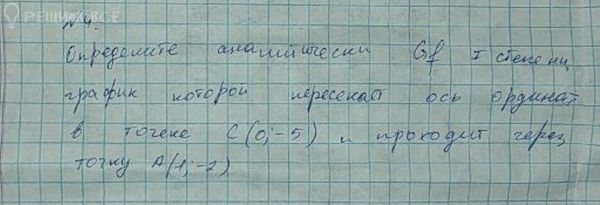 РЕШИМ ВСЕ
№4.
Определите аналитически Gf I степени,
график которой пересекат ось ординат
в точке C(0;-5) и проходит через
точку A(1;-2)